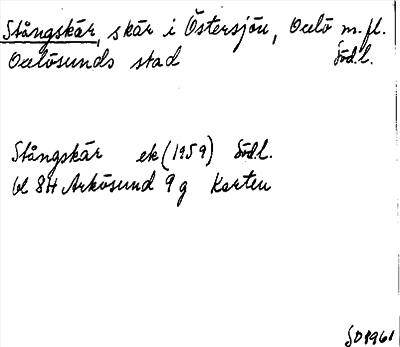 Stångskär, skär i Östersjön, Oxelö m.fl.
Oxelösunds stad Södl.
Stångskär ek (1959) Södl.
bl 8H Arkösund 9g Karten
SD 1961